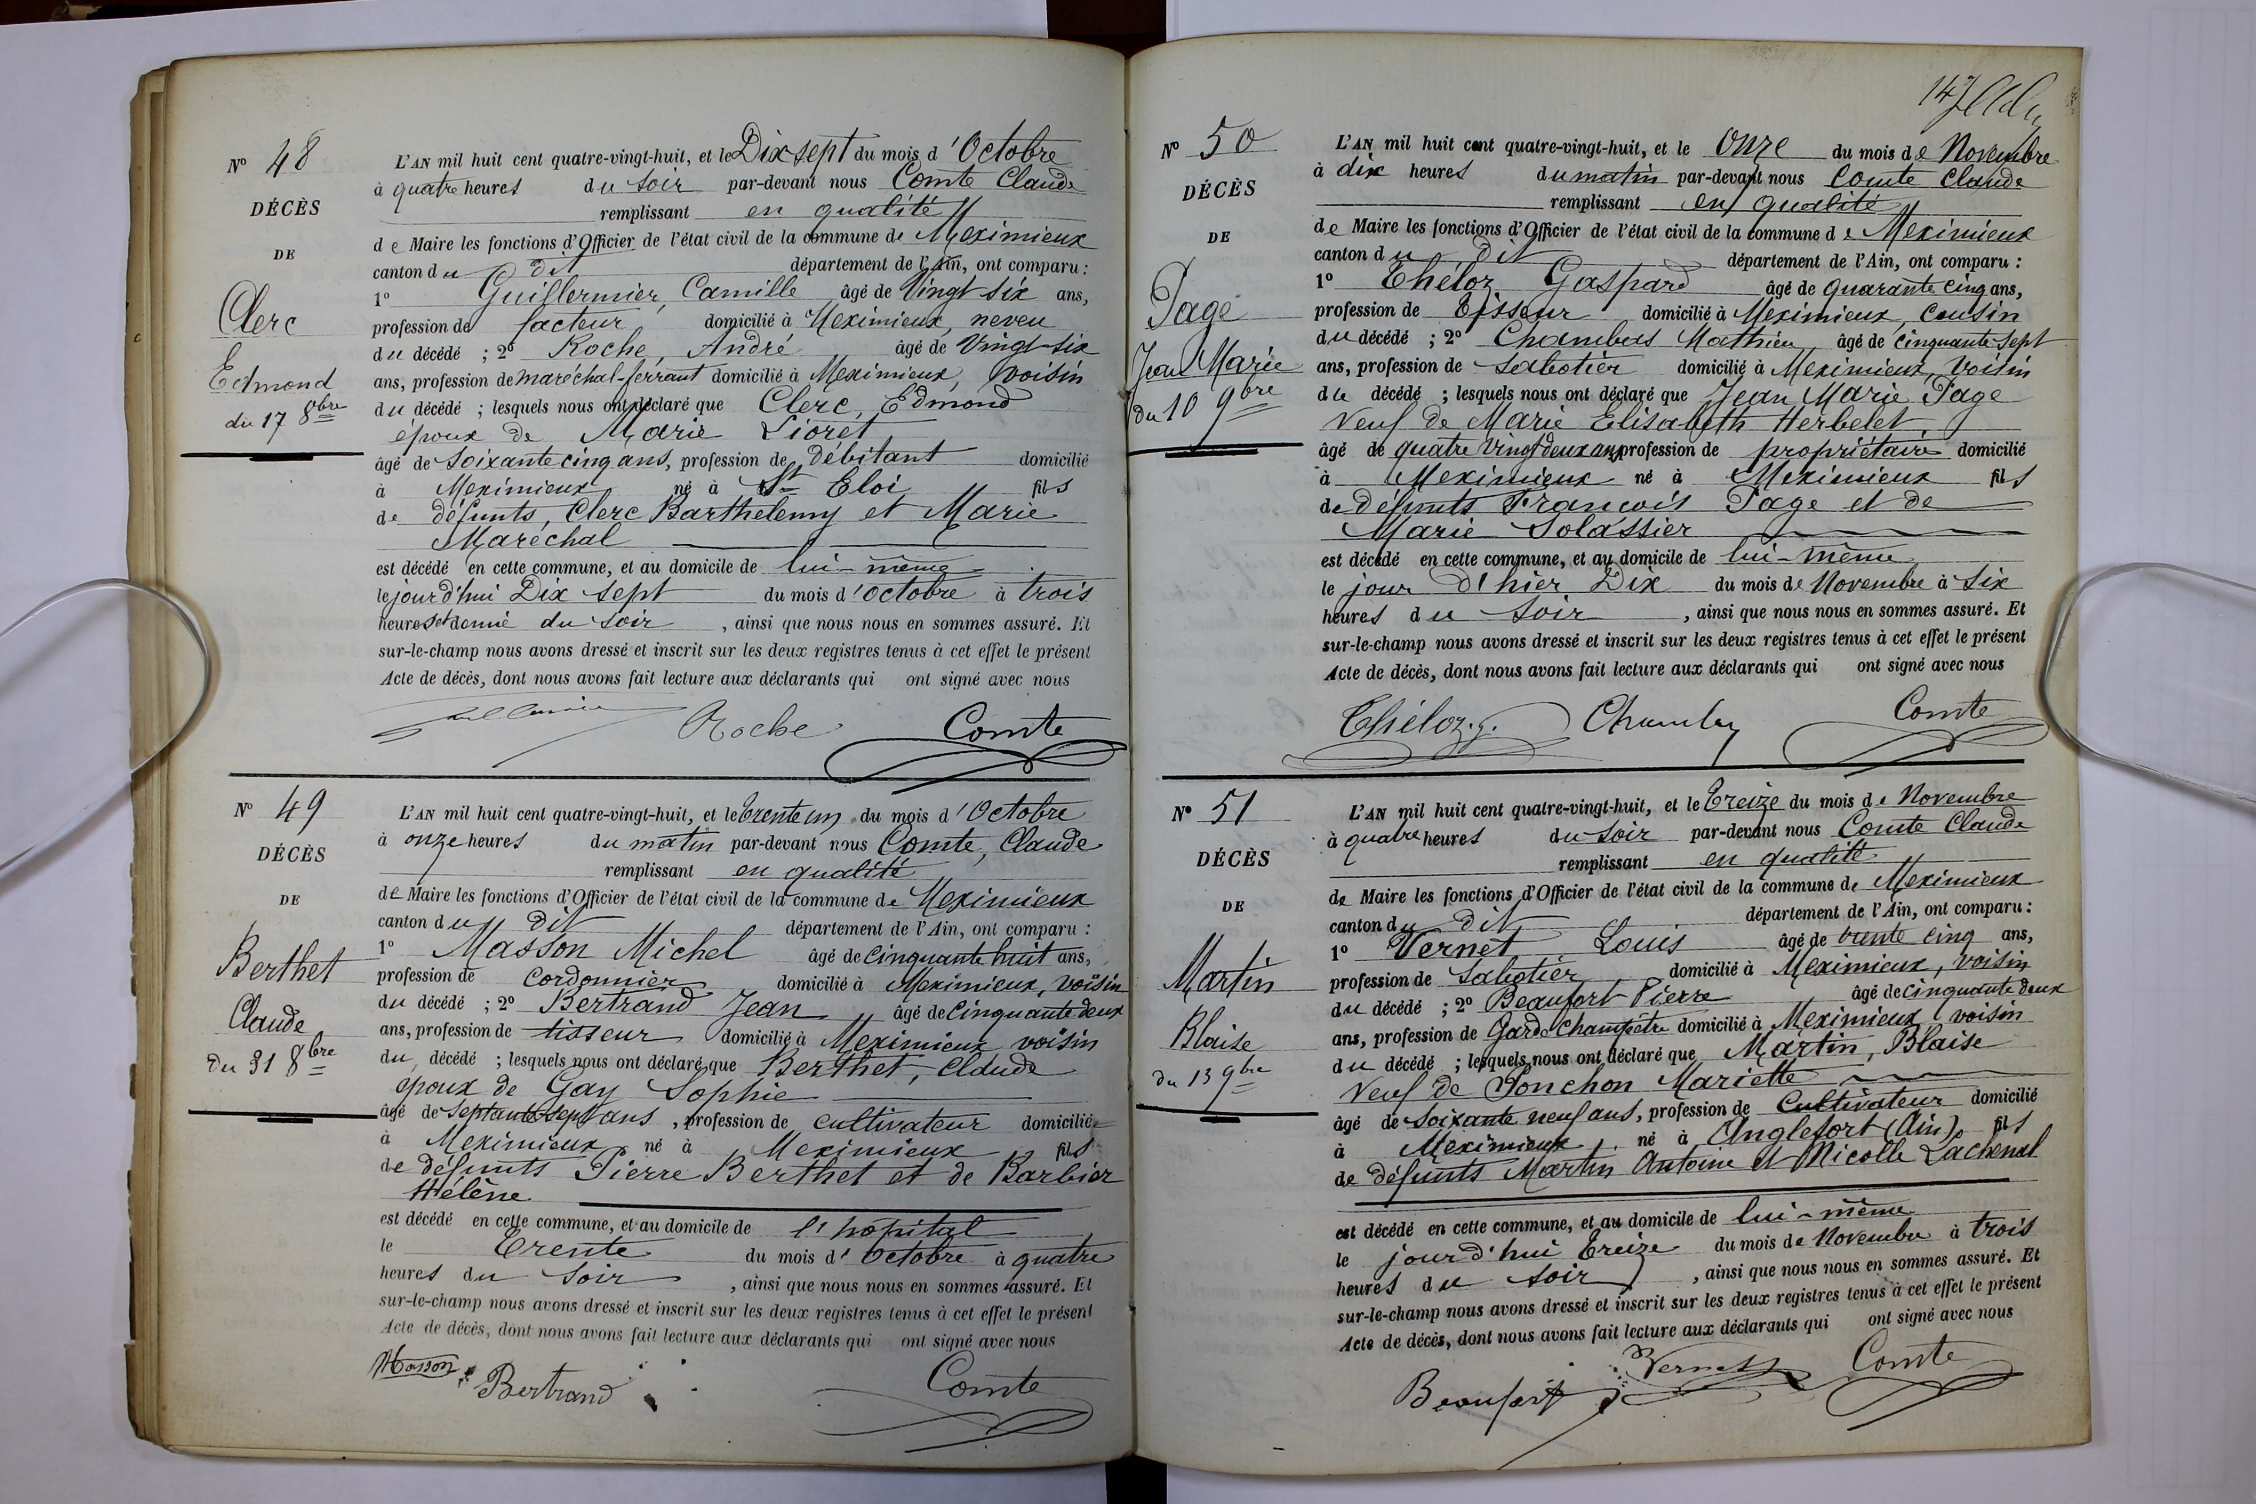 Nº 48
DÉCÈS
DE
Clerc
Edmond
du 17 8bre
L'AN mil huit cent quatre-vingt-huit, et le Dix sept du mois d'Octobre
à quatre heures du soir par-devant nous Comte Claude
remplissant en qualité
de Maire les fonctions d'Officier de l'état civil de la commune de Meximieux
canton du dit département de l'Ain, ont comparu :
1º Guillermier, Camille âgé de Vingt-six ans,
profession de facteur, domicilié à Meximieux, neveu
du décédé ; 2º Roche, André âgé de Vingt-six
ans, profession de maréchal-ferrant domicilié à Meximieux, voisin
du décédé ; lesquels nous ont déclaré que Clerc, Edmond
époux de Marie Lioret
âgé de soixante cinq ans, profession de débitant domicilié
à Meximieux né à St Eloi fils
de défunts, Clerc Barthelemy et Marie
Maréchal
est décédé en cette commune, et au domicile de lui-même
le jourd'hui Dix sept du mois d'octobre à trois
heures et demie du soir, ainsi que nous nous en sommes assuré. Et
sur-le-champ nous avons dressé et inscrit sur les deux registres tenus à cet effet le présent
Acte de décès, dont nous avons fait lecture aux déclarants qui ont signé avec nous
Roche Comte
Nº 49
DÉCÈS
DE
Berthet
Claude
Du 31 8bre
L'AN mil huit cent quatre-vingt-huit, et le trente un du mois d'Octobre
à onze heures du matin par-devant nous Comte, Claude
remplissant en qualité
de Maire les fonctions d'Officier de l'état civil de la commune de Meximieux
canton du dit département de l'Ain, ont comparu :
1º Masson Michel âgé de cinquante huit ans,
profession de cordonnier domicilié à Meximieux, voisin
du décédé ; 2º Bertrand Jean âgé de cinquante deux
ans, profession de tisseur domicilié à Meximieux voisin
du décédé ; lesquels nous ont déclaré que Berthet, Claude
époux de Gay Sophie
âgé de septante sept ans, profession de cultivateur domicilié
à Meximieux né à Meximieux fils
de défunts Pierre Berthet et de Barbier
Hélène
est décédé en cette commune, et au domicile de l'hôpital
le Trente du mois d'Octobre à quatre
heures du soir, ainsi que nous nous en sommes assuré. Et
sur-le-champ nous avons dressé et inscrit sur les deux registres tenus à cet effet le présent
Acte de décès, dont nous avons fait lecture aux déclarants qui ont signé avec nous
Masson Bertrand Comte
147
Nº 50
DÉCÈS
DE
Page
Jean Marie
du 10 9bre
L'AN mil huit cent quatre-vingt-huit, et le Onze du mois de Novembre
à dix heures du matin par-devant nous Comte Claude
remplissant en qualité
de Maire les fonctions d'Officier de l'état civil de la commune de Meximieux
canton du dit département de l'Ain, ont comparu :
1º Théloz Gaspard âgé de quarante cinq ans,
profession de Tisseur domicilié à Meximieux, Cousin
du décédé ; 2º Chambas Mathieu âgé de cinquante sept
ans, profession de sabotier domicilié à Meximieux, voisin
du décédé ; lesquels nous ont déclaré que Jean Marie Page
Veuf de Marie Elisabeth Herbelet
âgé de quatre vingt deux ans profession de propriétaire domicilié
à Meximieux né à Meximieux fils
de défunts François Page et de
Marie Solassier
est décédé en cette commune, et au domicile de lui-même
le jour d'hier Dix du mois de Novembre à six
heures du soir, ainsi que nous nous en sommes assuré. Et
sur-le-champ nous avons dressé et inscrit sur les deux registres tenus à cet effet le présent
Acte de décès, dont nous avons fait lecture aux déclarants qui ont signé avec nous
Théloz. g. Comte
Nº 51
DÉCÈS
DE
Martin
Blaise
du 13 9bre
L'AN mil huit cent quatre-vingt-huit, et le Treize du mois de Novembre
à quatre heures du soir par-devant nous Comte Claude
remplissant en qualité
de Maire les fonctions d'Officier de l'état civil de la commune de Meximieux
canton du dit département de l'Ain, ont comparu :
1º Vernet Louis âgé de trente cinq ans,
profession de Sabotier domicilié à Meximieux, voisin
du décédé ; 2º Beaufort Pierre âgé de cinquante deux
ans, profession de Garde champêtre domicilié à Meximieux voisin
du décédé ; lesquels nous ont déclaré que Martin, Blaise
Veuf de Ponchon Mariette
âgé de soixante neuf ans, profession de Cultivateur domicilié
à Meximieux, né à Anglefort (Ain), fils
de défunts Martin Antoine et Nicolle Lachenal
est décédé en cette commune, et au domicile de lui-même
le jourd'hui Treize du mois de Novembre à trois
heures du soir, ainsi que nous nous en sommes assuré. Et
sur-le-champ nous avons dressé et inscrit sur les deux registres tenus à cet effet le présent
Acte de décès, dont nous avons fait lecture aux déclarants qui ont signé avec nous
Beaufort Vernet Comte